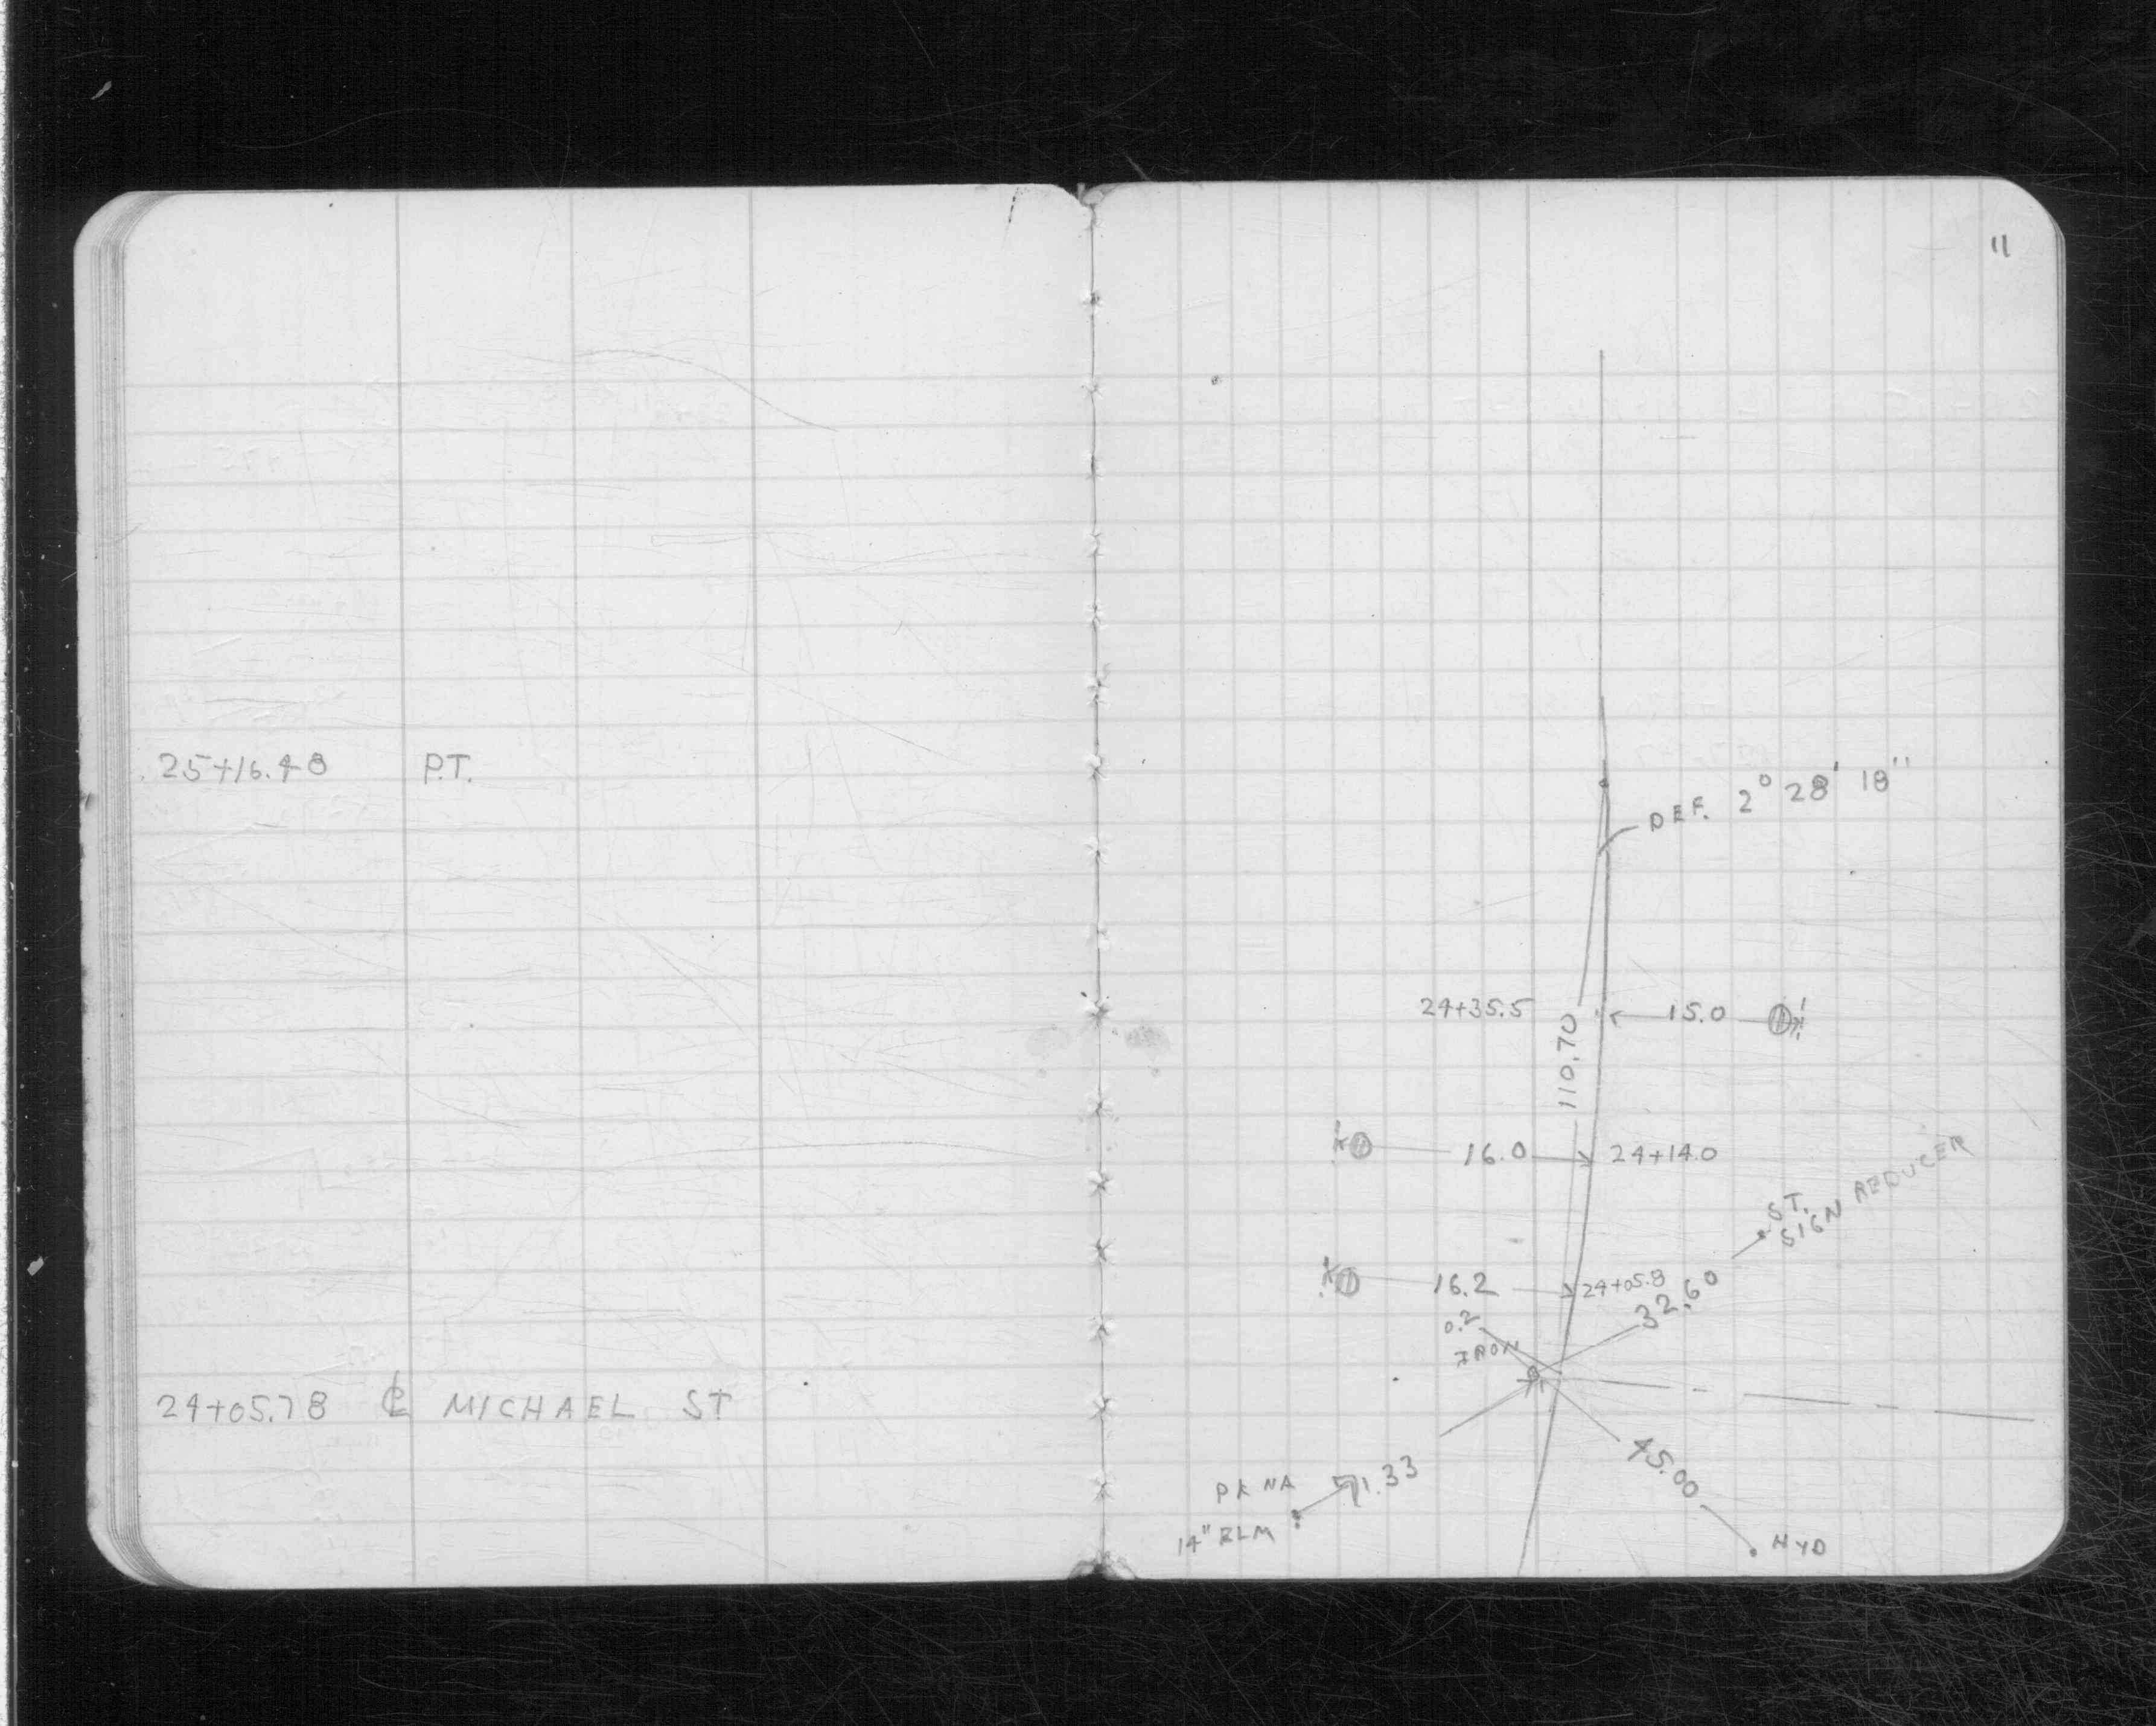 11
25+16.48 P.T.
DEF. 2° 28' 18"
24+35.5
15.0
110.70
16.0
24+14.0
ST.
SIGN REDUCER
16.2
24+05.8
32.60
0.2
IRON
24+05.78 ℄ MICHAEL ST
45.00
PK NA
71.33
14" ELM
HYD